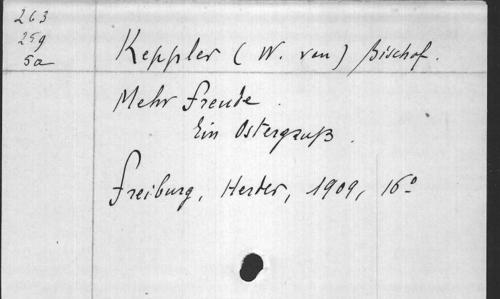 263
259
5a
Keppler (W. von) Bischof.
Mehr Freude.
Ein Ostergruß.
Freiburg, Herder, 1909, 16°